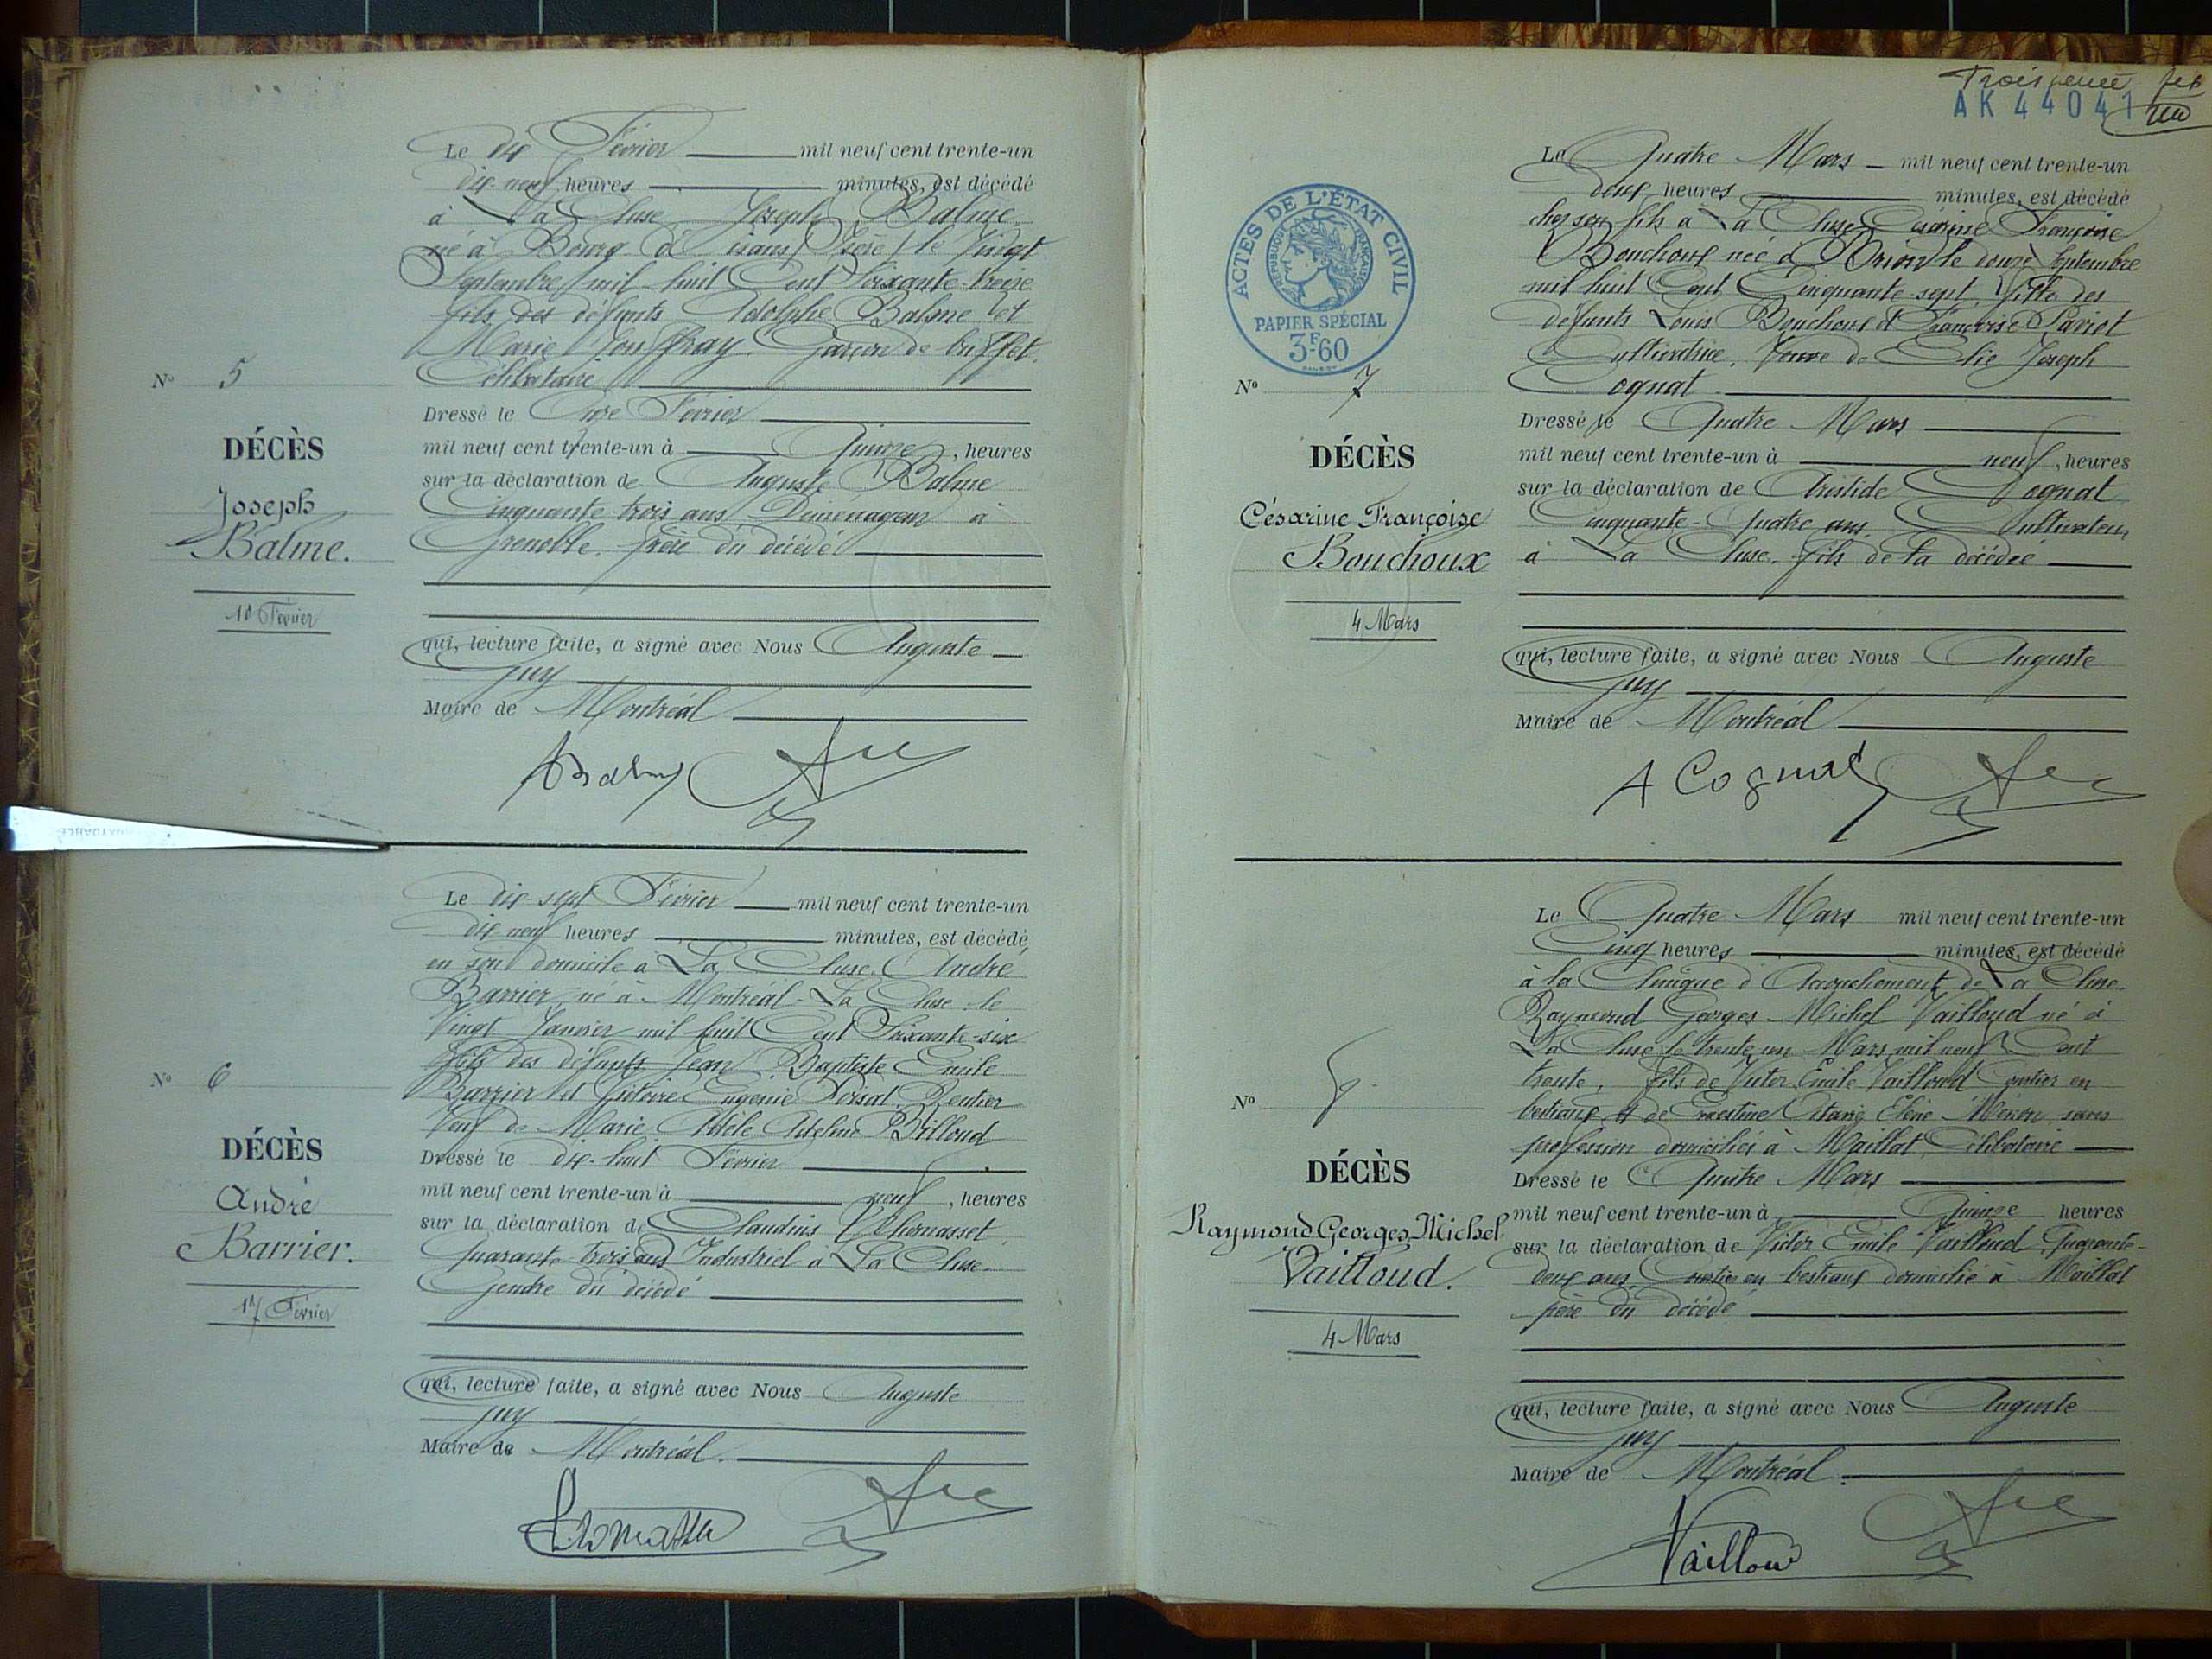 Le dix Février mil neuf cent trente-un
dix-neuf heures minutes, est décédé
à La Cluse Joseph Balme
né à Bourg d'Oisans (Isère) le vingt
Septembre mil huit Cent Soixante-treize
fils des défunts Adolphe Balme et
Marie Jouffray. Garçon de buffet.
Célibataire
Dressé le Onze Février
mil neuf cent trente-un à Quinze, heures
sur la déclaration de Auguste Balme
Cinquante trois ans Déménageur à
Grenoble. frère du décédé
qui, lecture faite, a signé avec Nous Auguste
Guy
Maire de Montréal
N° 5
DÉCÈS
Joseph
Balme.
10 Février
Le dix-sept Février mil neuf cent trente-un
dix neuf heures minutes, est décédé
en son domicile à La Cluse. André
Barrier né à Montréal-La Cluse le
Vingt Janvier mil huit Cent Soixante-six
fils des défunts Jean Baptiste Emile
Barrier et Victoire Eugénie Rentier
Veuf de Marie Adèle Adeline Billoud
Dressé le dix-huit Février
mil neuf cent trente-un à neuf, heures
sur la déclaration de Claudius Thomasset
Quarante-trois ans Industriel à La Cluse.
Gendre du décédé
qui, lecture faite, a signé avec Nous Auguste
Guy
Maire de Montréal.
N° 6
DÉCÈS
André
Barrier.
17 Février
AK 44041
ACTES DE L'ÉTAT CIVIL
RÉPUBLIQUE FRANÇAISE
PAPIER SPÉCIAL
3F.60
Le Quatre Mars mil neuf cent trente-un
deux heures minutes, est décédé
chez son fils à La Cluse Césarine Françoise
Bouchoux née à le douze Septembre
mil huit Cent Cinquante-sept, fille des
défunts Louis Bouchoux et Françoise
Cultivatrice, Veuve de Elie Joseph
Cognat
Dressé le Quatre Mars
mil neuf cent trente-un à neuf, heures
sur la déclaration de Aristide Cognat
Cinquante-Quatre ans, Cultivateur
à La Cluse. fils de la décédée
qui, lecture faite, a signé avec Nous Auguste
Guy
Maire de Montréal
A Cognat
N° 7
DÉCÈS
Césarine Françoise
Bouchoux
4 Mars
Le Quatre Mars mil neuf cent trente-un
Cinq heures minutes, est décédé
à la Clinique d'Accouchement de La Cluse.
Raymond Georges Michel Vailloud né à
La Cluse le trente un Mars mil neuf Cent
trente, fils de Victor Emile Vailloud courtier en
bestiaux et de Ernestine sans
profession domiciliés à Maillat, Célibataire
Dressé le Quatre Mars
mil neuf cent trente-un à Quinze heures
sur la déclaration de Victor Emile Vailloud Quarante-
deux ans, Courtier en bestiaux domicilié à Maillat
père du décédé
qui, lecture faite, a signé avec Nous Auguste
Guy
Maire de Montréal.
Vailloud
N° 8
DÉCÈS
Raymond Georges Michel
Vailloud.
4 Mars